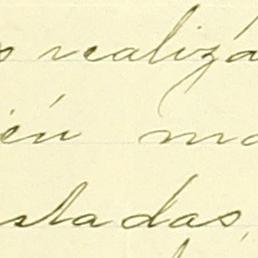 s realizá
ién ma
stadas,